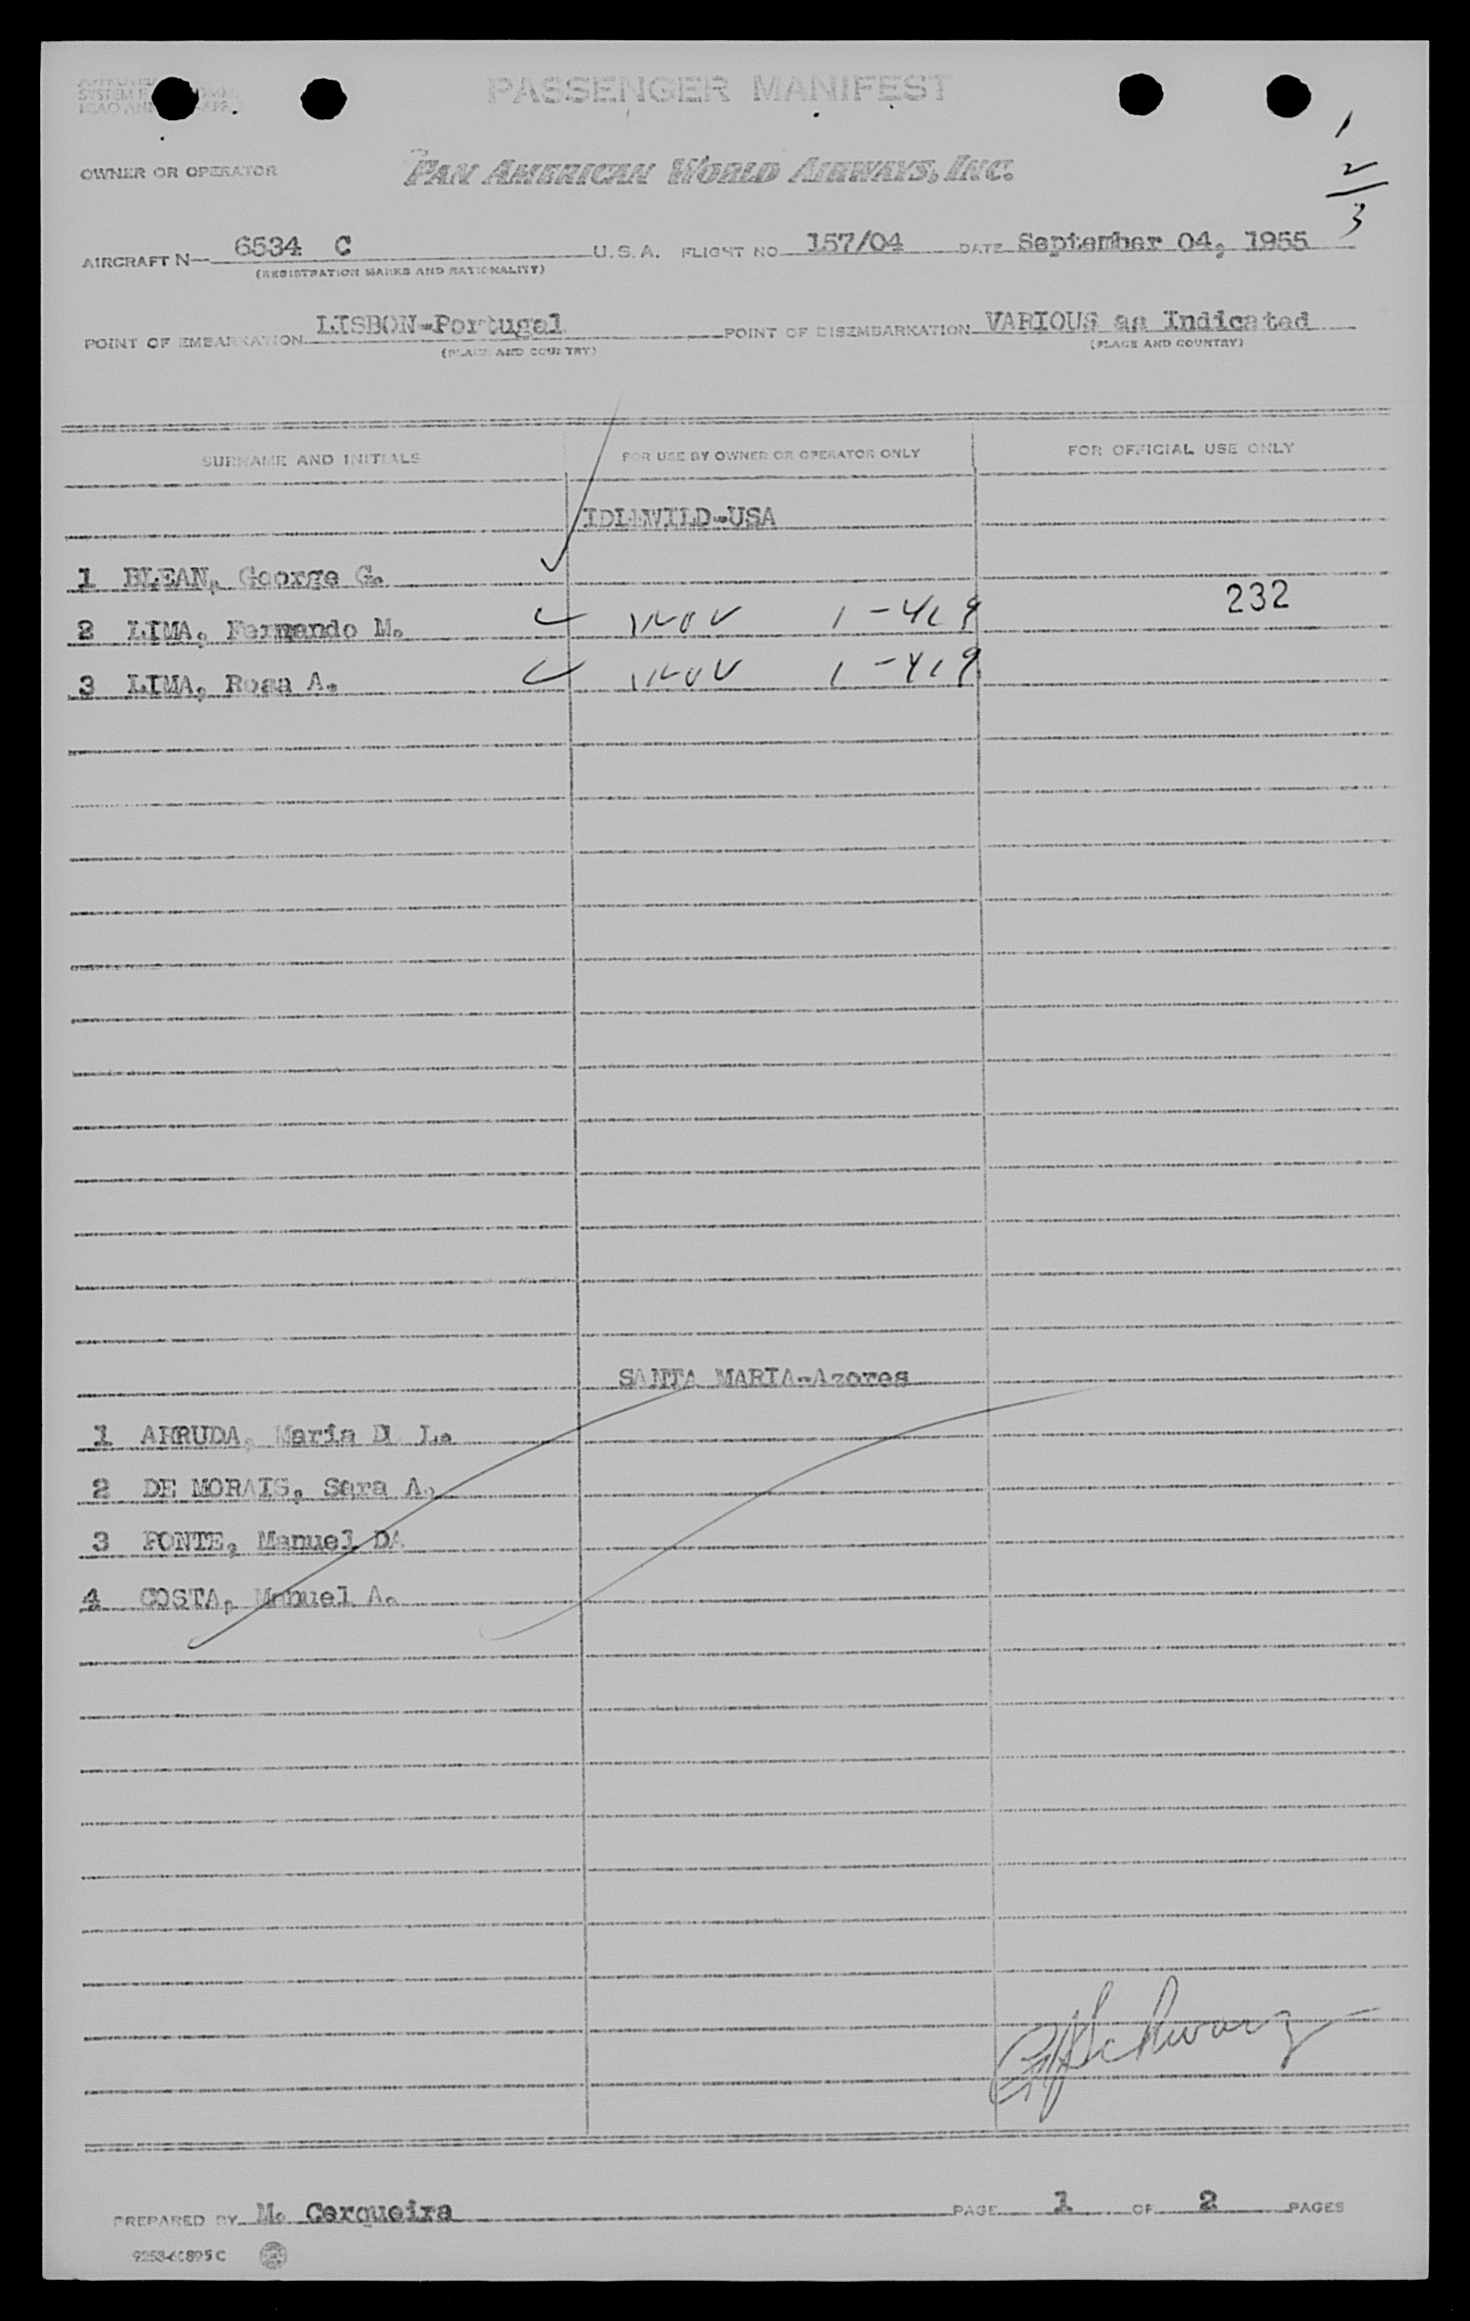 PASSENGER MANIFEST
1
2
3
OWNER OR OPERATOR PAN AMERICAN WORLD AIRWAYS, INC.
AIRCRAFT N- 6534 C U.S.A. FLIGHT NO 157/04 DATE September 04, 1955
(REGISTRATION MARKS AND NATIONALITY)
POINT OF EMBARKATION LISBON-Portugal POINT OF DISEMBARKATION VARIOUS as Indicated
(PLACE AND COUNTRY) (PLACE AND COUNTRY)
SURNAME AND INITIALS FOR USE BY OWNER OR OPERATOR ONLY FOR OFFICIAL USE ONLY
IDLEWILD-USA
1 BLEAN, George G.
2 LIMA, Fernando M. 232
3 LIMA, Rosa A.
SANTA MARIA-Azores
1 ARRUDA, Maria D L.
2 DE MORAIS, Sara A.
3 PONTE, Manuel DA
4 COSTA, Manuel A.
Schwarz
PREPARED BY M. Cerqueira PAGE 1 OF 2 PAGES